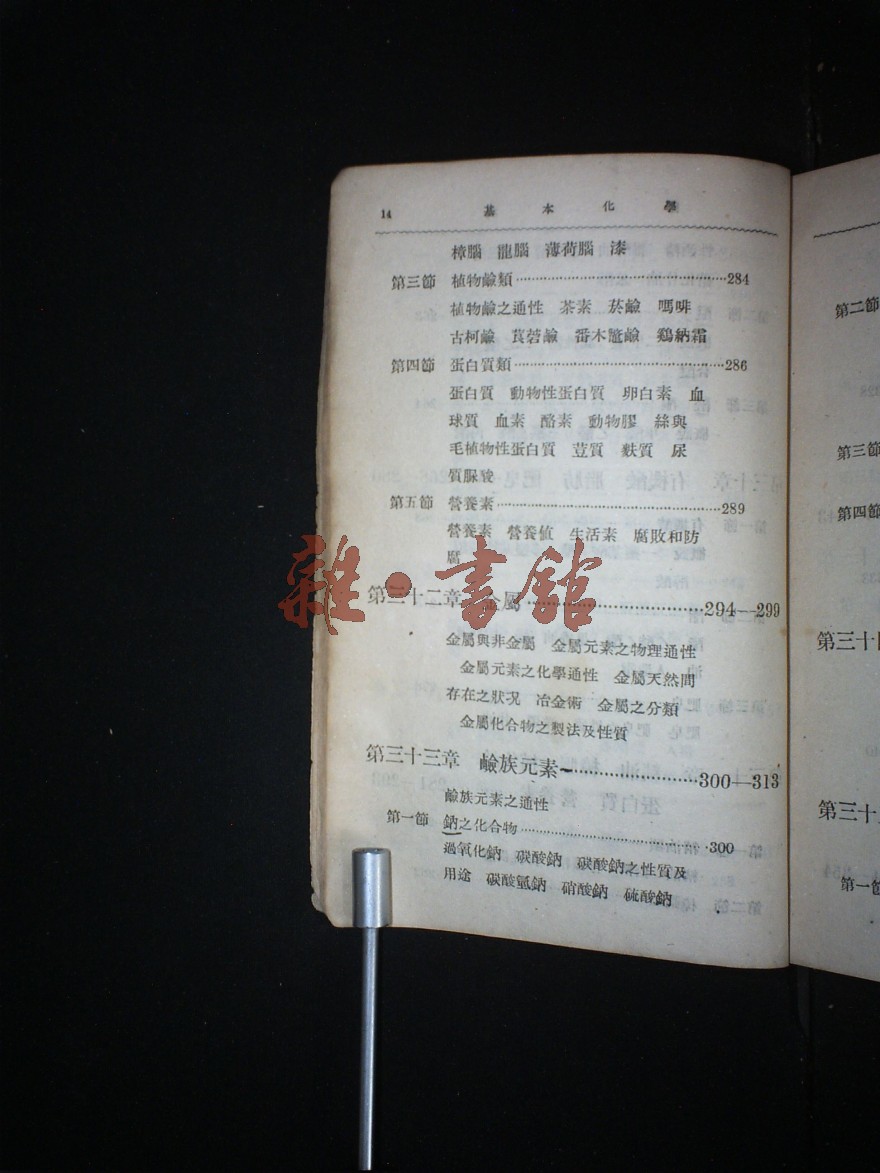 14 基本化學
樟腦 龍腦 薄荷腦 漆
第三節 植物鹼類……284
植物鹼之通性 茶素 菸鹼 嗎啡
古柯鹼 莨菪鹼 番木鼈鹼 鷄納霜
第四節 蛋白質類……286
蛋白質 動物性蛋白質 卵白素 血
球質 血素 酪素 動物膠 絲與
毛植物性蛋白質 荳質 麩質 尿
質脲
第五節 營養素……289
營養素 營養値 生活素 腐敗和防
腐
第三十二章 金屬……294—299
金屬與非金屬 金屬元素之物理通性
金屬元素之化學通性 金屬天然間
存在之狀况 冶金術 金屬之分類
金屬化合物之製法及性質
第三十三章 鹼族元素……300—313
鹼族元素之通性
第一節 鈉之化合物……300
過氧化鈉 碳酸鈉 碳酸鈉之性質及
用途 碳酸氫鈉 硝酸鈉 硫酸鈉
雜·書館
第二節
第三節
第四節
第三十
第三十
第一節